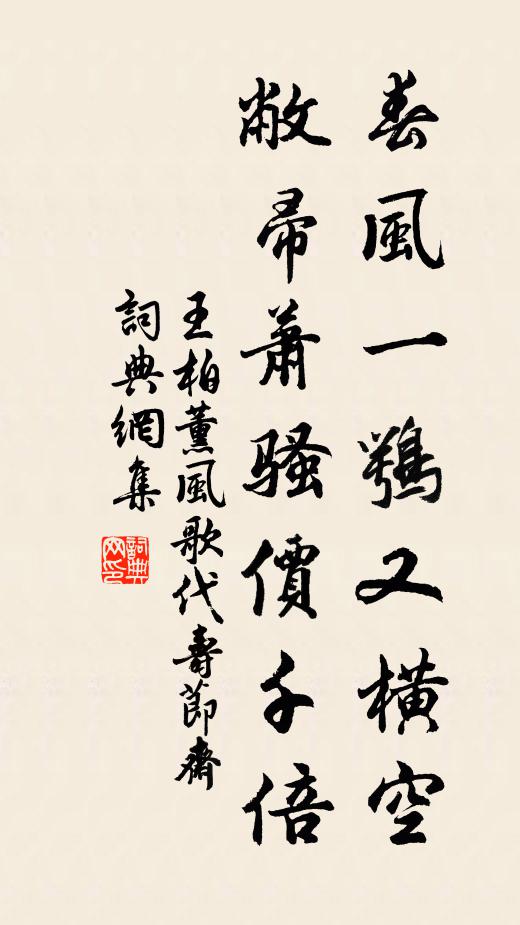 春風一鶚又橫空
敝帚蕭騷價千倍
王柏薰風歌代壽節齋
詞典網集
詞典网印